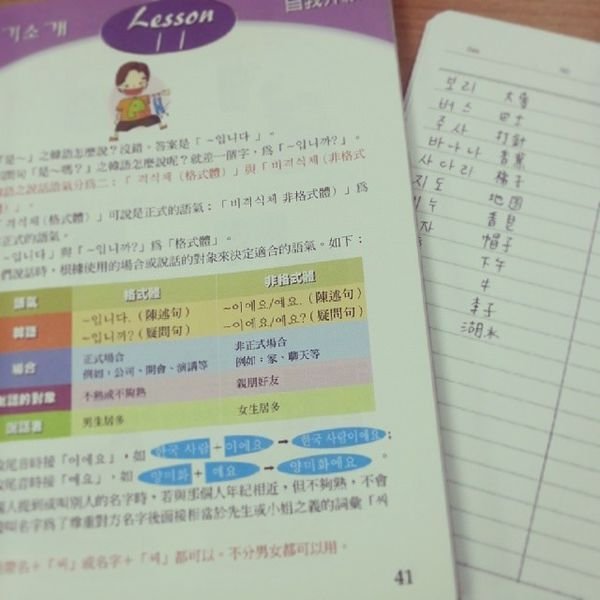 기소개
Lesson
11
自我介
「是~」之韓語怎麼說?沒錯。答案是「~입니다」。
問句「是~嗎?」之韓語怎麼說呢?就差一個字,為「~입니까?」。
語之說話語氣分為二:「격식체 (格式體)」與「비격식체 (非格式
)」。
격식체(格式體)」可說是正式的語氣;「비격식체 非格式體)」為
正式的語氣。
~입니다」與「~입니까?」為「格式體」。
們說話時,根據使用的場合或說話的對象來決定適合的語氣。如下:
語氣 格式體 非格式體
韓語 ~입니다.(陳述句) ~이에요/예요.(陳述句)
~입니까?(疑問句) ~이에요/예요?(疑問句)
場合 正式場合 非正式場合
例如,公司、開會、演講等 例如:家、聊天等
說話的對象 不熟或不夠熟 親朋好友
說話者 男生居多 女生居多
尾音時接「이에요」,如 한국 사람+이에요 → 한국 사람이에요;
尾音時接「예요」,如 양미화+예요 → 양미화예요。
人提到或叫別人的名字時,若與那個人年紀相近,但不夠熟,不會
叫名字為了尊重對方名字後面接相當於先生或小姐之義的詞彙「씨
名+「씨」或名字+「씨」都可以。不分男女都可以用。
41
보리 大麥
버스 巴士
주사 打針
바나나 香蕉
사다리 梯子
지도 地圖
帽子
下午
牛
李子
湖水